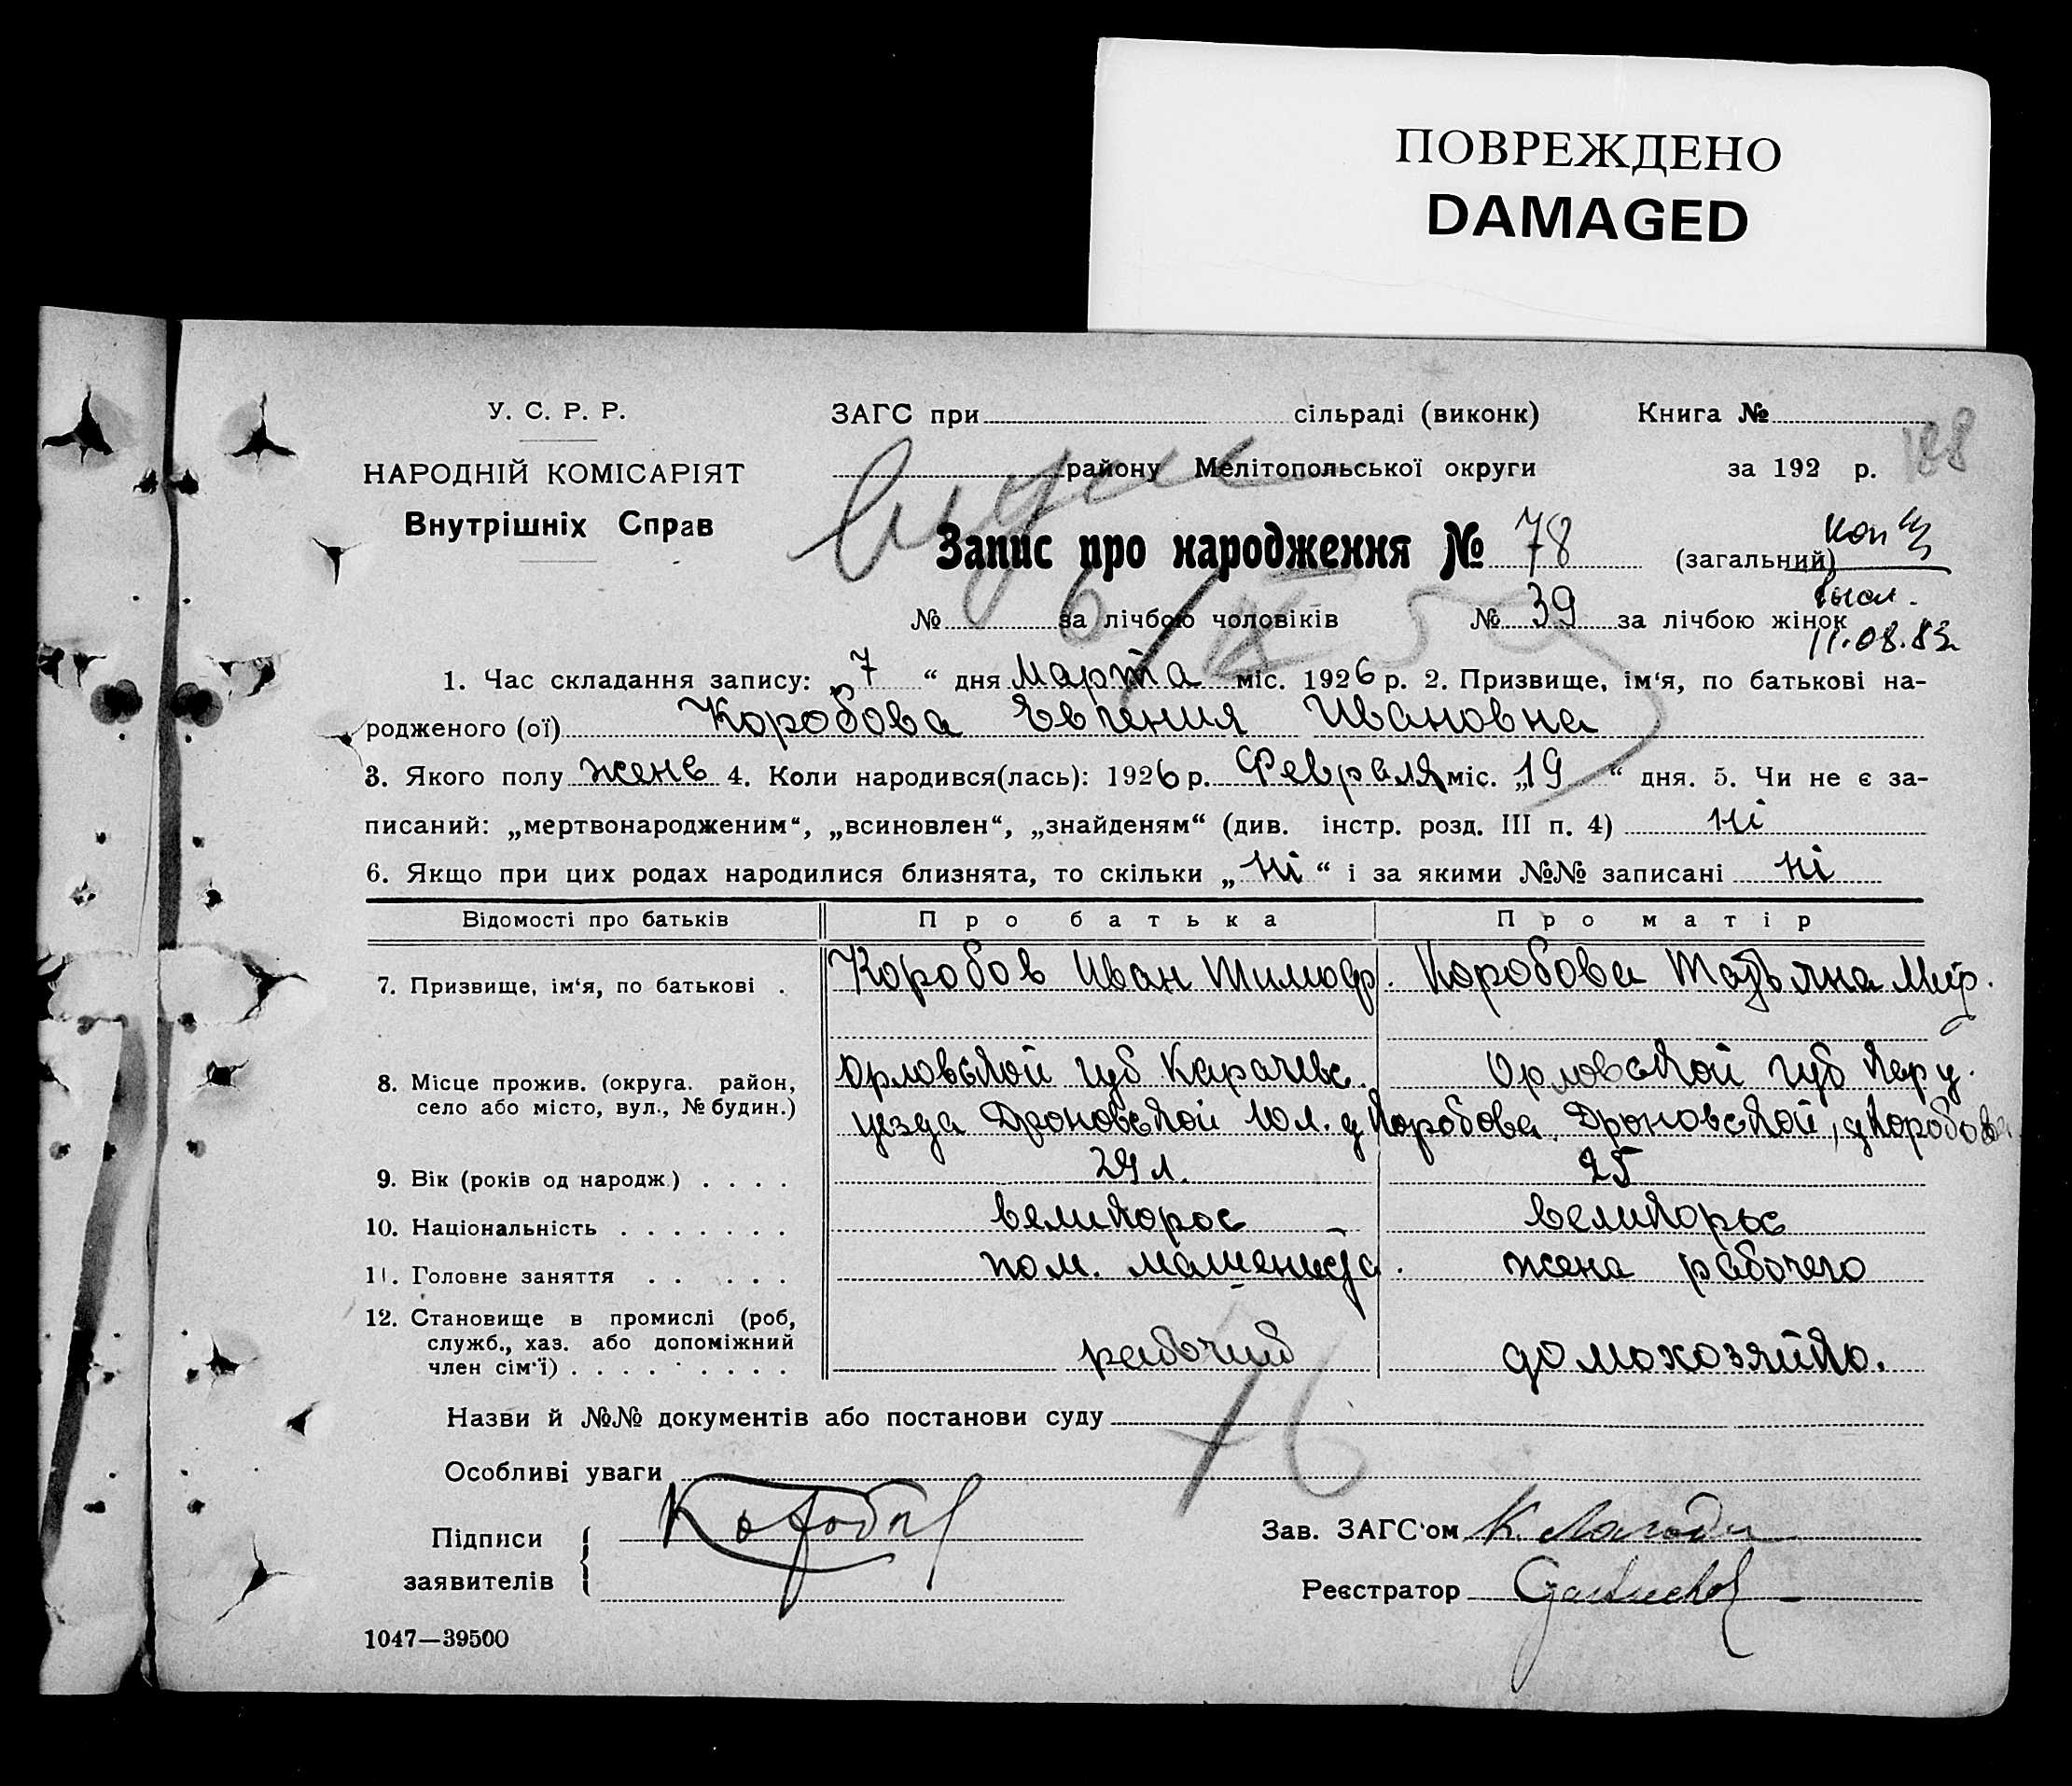 ПОВРЕЖДЕНО
DAMAGED
У. С. Р. Р.
НАРОДНІЙ КОМІСАРІЯТ
Внутрішніх Справ
ЗАГС при сільраді (виконк) Книга №
188
району Мелітопольської округи за 192 р.
Запис про народження № 78 (загальний)
№ за лічбою чоловіків № 39 за лічбою жінок
11.08.83
1. Час складання запису: „ 7 “ дня Марта міс. 1926 р. 2. Призвище, ім‘я, по батькові на-
родженого (ої) Коробова Евгения Ивановна
3. Якого полу жене 4. Коли народився(лась): 1926 р. Февраля міс. „19 “ дня. 5. Чи не є за-
писаний: „мертвонародженим“, „всиновлен“, „знайденям“ (див. інстр. розд. III п. 4) ні
6. Якщо при цих родах народилися близнята, то скільки „ ні “ і за якими №№ записані ні
Відомості про батьків Про батька Про матір
7. Призвище, ім‘я, по батькові . Коробов Иван Тимоф. Коробова Татьяна Мир.
8. Місце прожив. (округа. район, Орловской губ Карачевс. Орловской губ Кар у.
село або місто, вул., № будин.) уезда Дроновской вол. д Коробова Дроновской, д Коробова
9. Вік (років од народж) . . . . 29 л. 25
10. Національність . . . . . . . великорос великорос
11. Головне заняття . . . . . . пом. машениста. жена рабочего
12. Становище в промислі (роб,
служб., хаз. або допоміжний
член сім‘ї) . . . . . . . . . рабочий домохозяйко.
Назви й №№ документів або постанови суду
Особливі уваги
76
Підписи
заявителів
Коробов
Зав. ЗАГС‘ом
Реєстратор
1047—39500